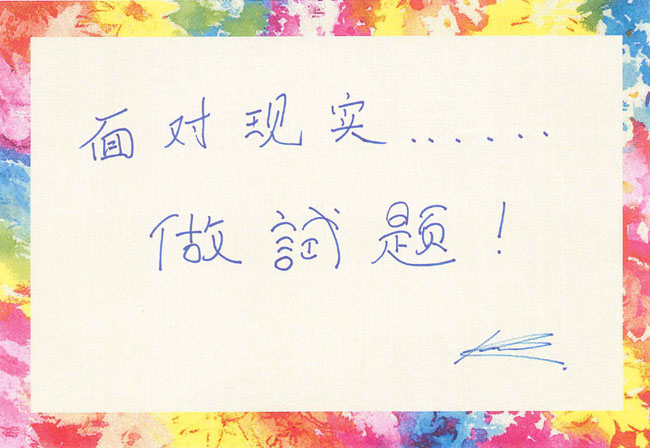 面对现实......
做試题！